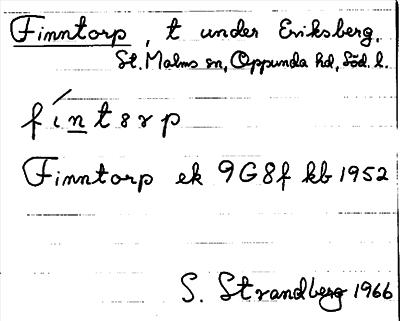 Finntorp, t under Eriksberg.
St. Malms sn, Oppunda hd, Söd. l.
fíntɘrp
Finntorp ek 9G8f kb 1952
S. Strandberg 1966